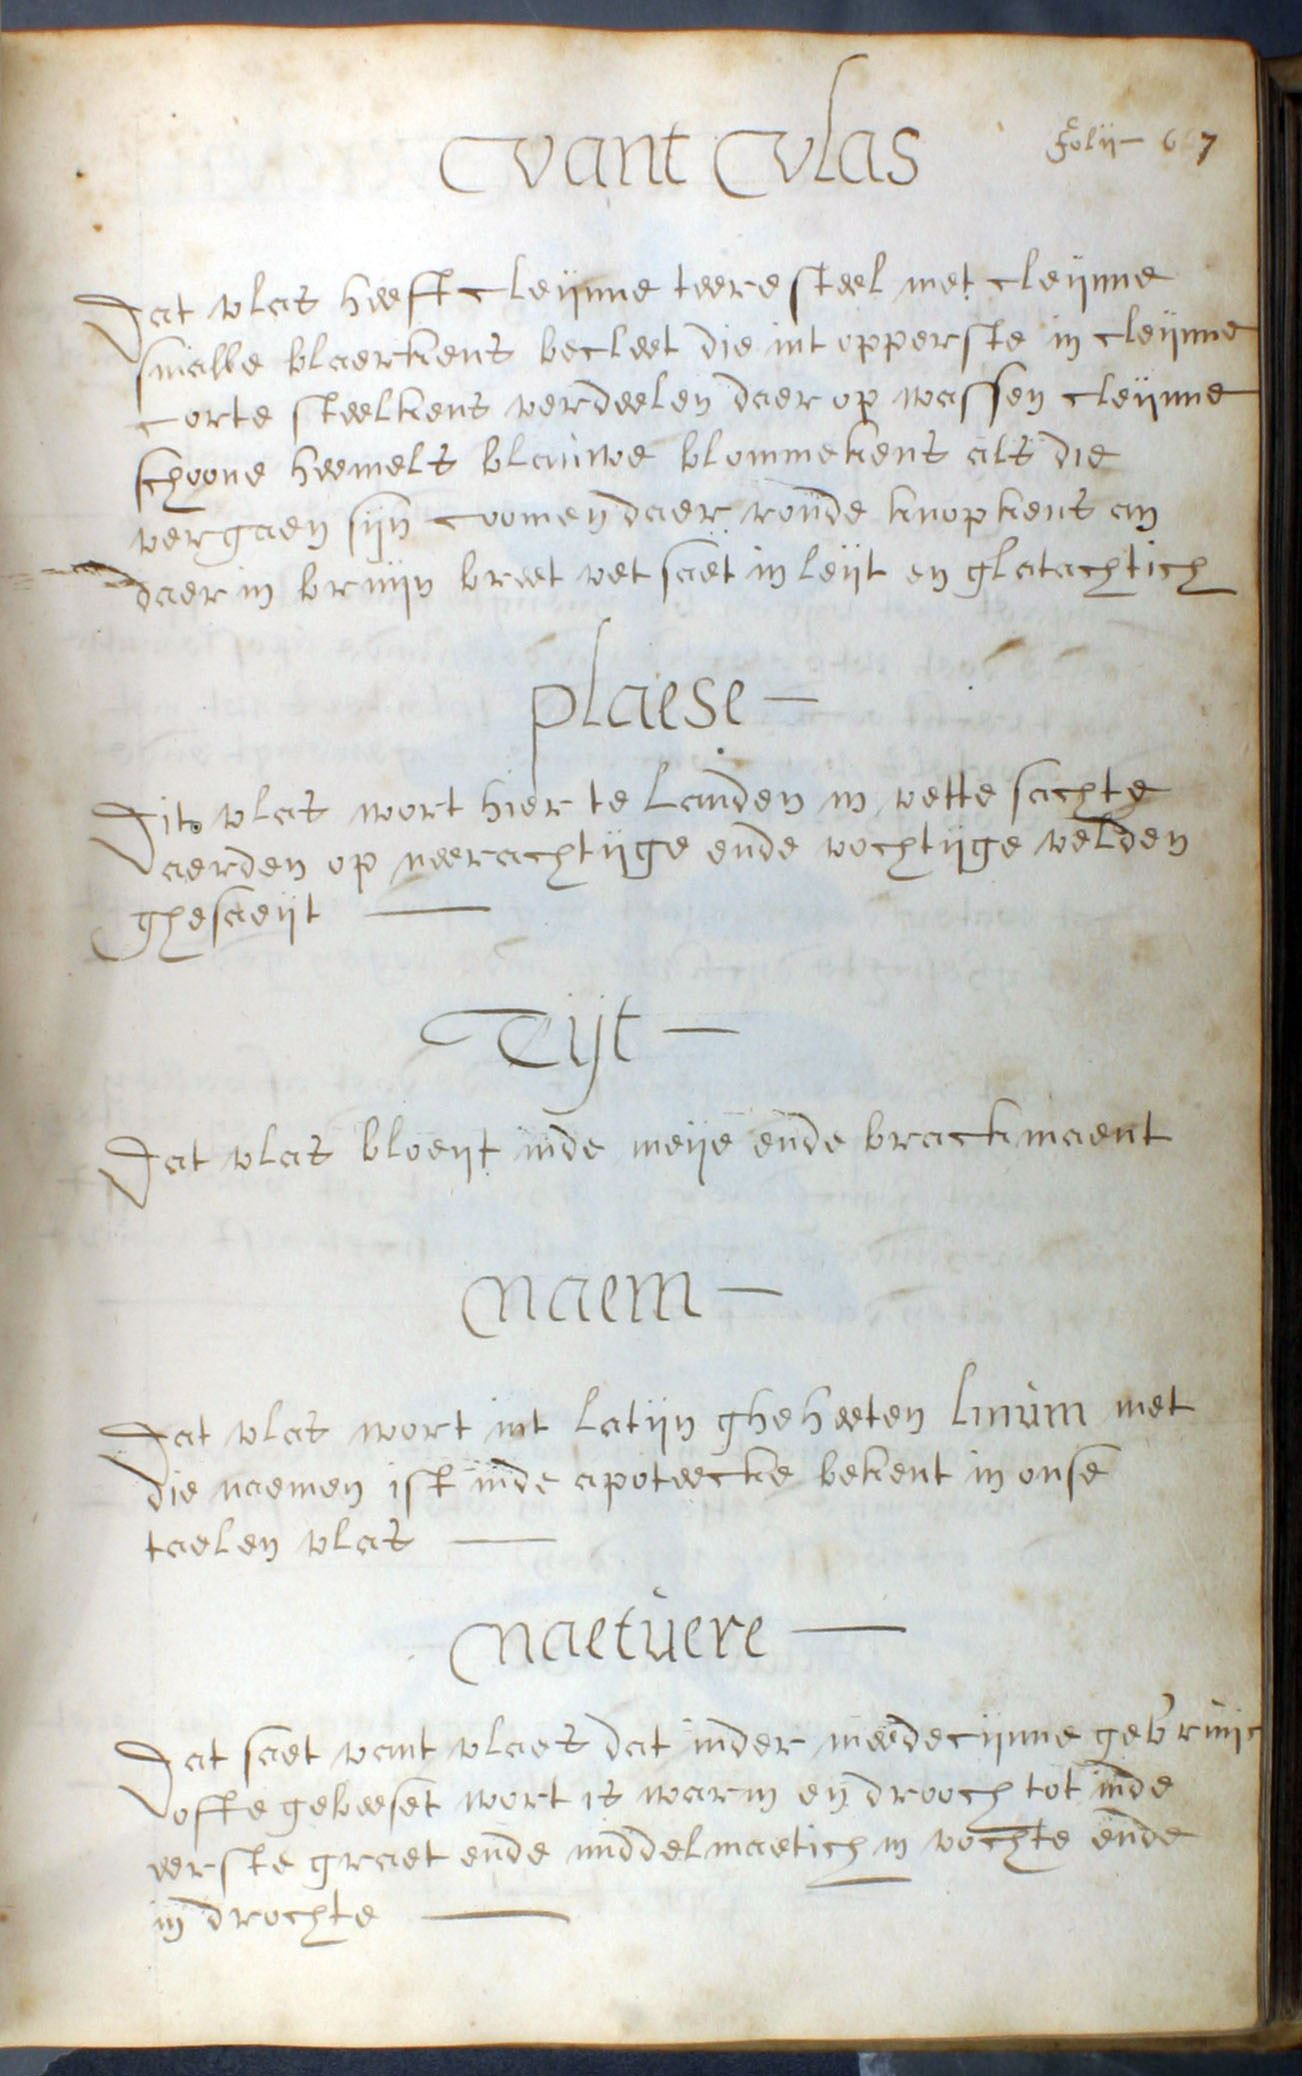 vant vlas
Folij 67
Dat vlas heeft cleijnne teere steel met cleijnne
smalle blaerkens becleet die int opperste in cleijnne
corte steelkens verdeelen daer op wassen cleijnne
schoone heemels blauwe blommekens als die
vergaen sijn coomen daer ronde knopkens an
daer in bruijn breet vet saet in leijt en glatachtich
plaese
Dit vlas wort hier te landen in vette sachte
aerden op neerachtijge ende vochtijge velden
ghesaeijt
Tijt
Dat vlas bloeijt inde meije ende brackmaent
naem
Dat vlas wort int latijn gheheeten linum met
die naemen ist inde apoteecke bekent in onse
taelen vlas
naetuere
Dat saet vant vlaes dat inder meedecijnne gebruijc
ofte gebeeset wort is warm en drooch tot inde
eerste graet ende middelmaetich in vochte ende
in drochte